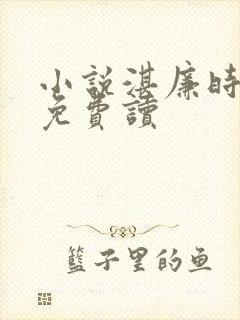 小說湛廉時
免費讀
籃子里的鱼